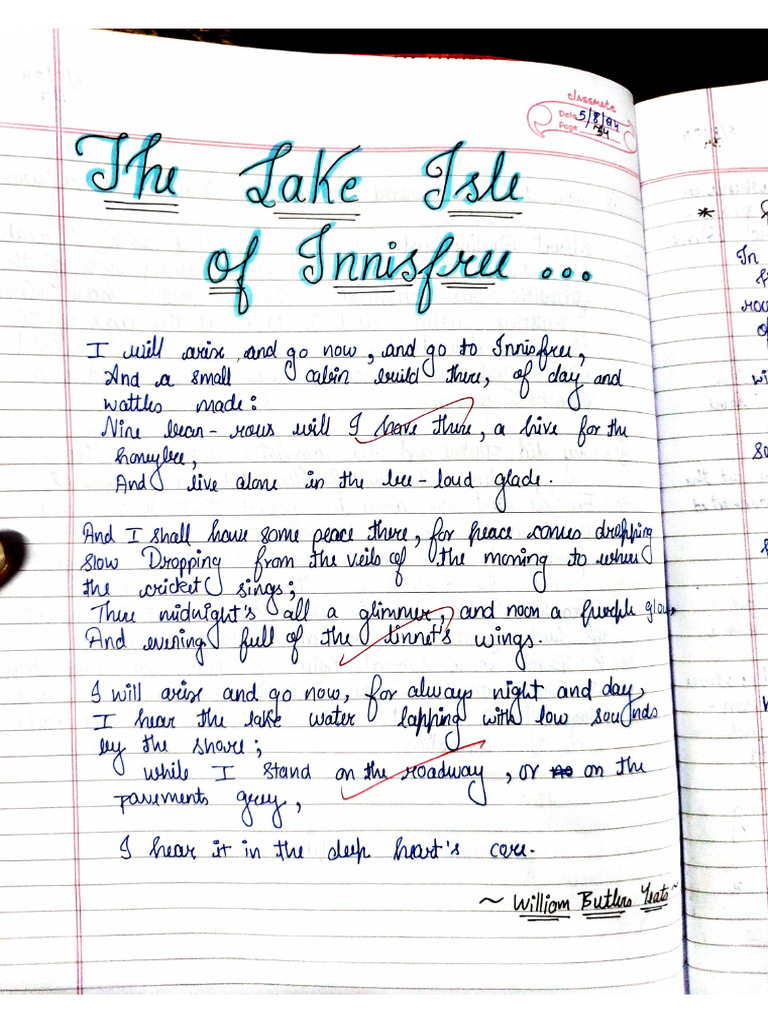 classmate
Date 5/8/24
Page 34
The Lake Isle
of Innisfree ...
I will arise and go now, and go to Innisfree,
And a small cabin build there, of day and
wattles made:
Nine bean-rows will I have there, a hive for the
honeybee,
And live alone in the bee-loud glade.
And I shall have some peace there, for peace comes dropping
slow Dropping from the veils of the morning to where
the cricket sings;
There midnight's all a glimmer, and noon a purple glow,
And evening full of the linnet's wings.
I will arise and go now, for always night and day,
I hear the lake water lapping with low sounds
by the shore;
while I stand on the roadway, or on the
pavements grey,
I hear it in the deep heart's core.
~ William Butlers Yeats ~
*
In